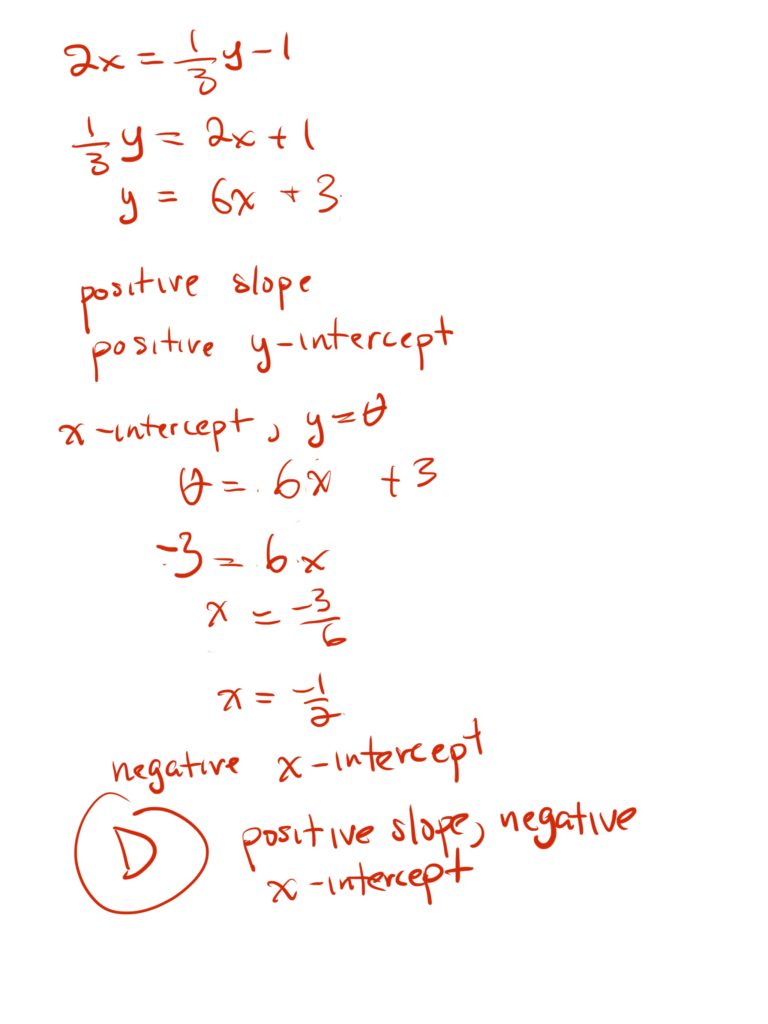 2x = 1/3 y - 1
1/3 y = 2x + 1
y = 6x + 3
positive slope
positive y-intercept
x-intercept, y = 0
0 = 6x + 3
-3 = 6x
x = -3/6
x = -1/2
negative x-intercept
D positive slope, negative
x-intercept